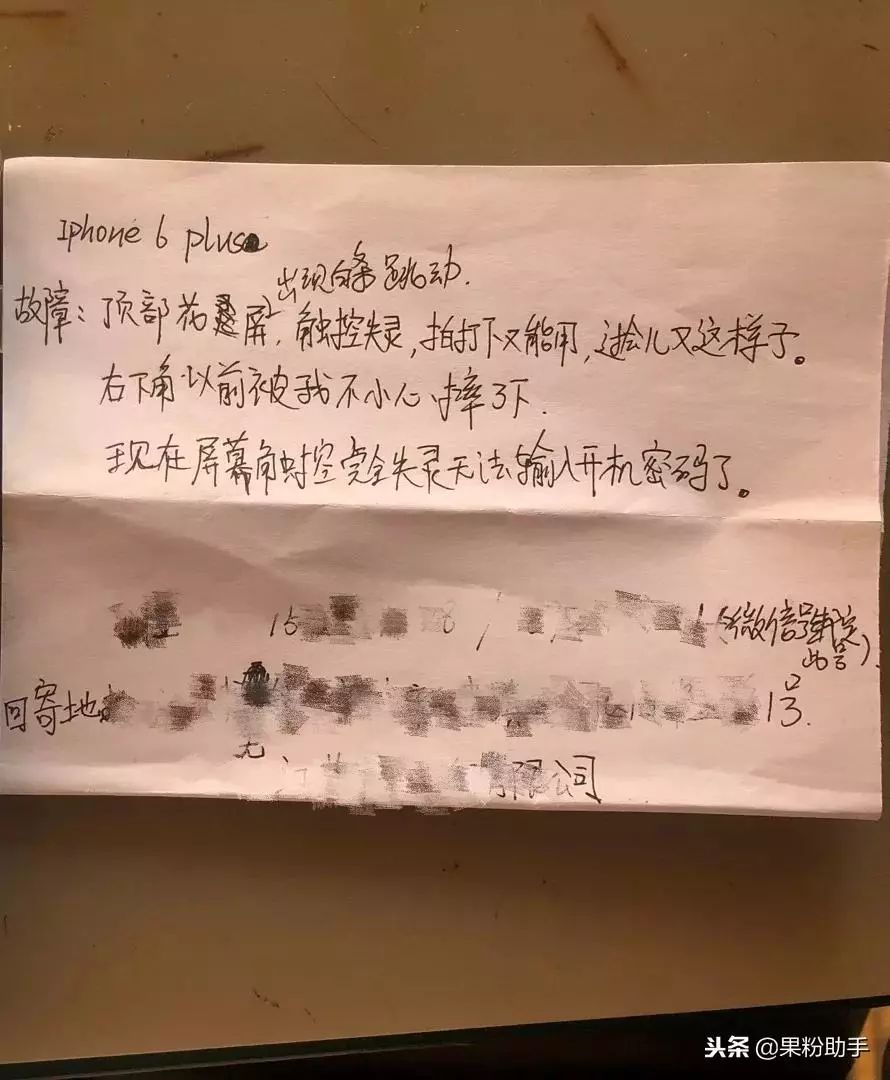 Iphone 6 plus
出现白条跳动.
故障：顶部花屏，触控失灵，拍打下又能用，过会儿又这样子。
右下角以前被我不小心摔了下.
现在屏幕触控完全失灵无法输入开机密码了。
15 8 / (微信号绑定
此号).
回寄地 13.
有限公司
头条 @果粉助手